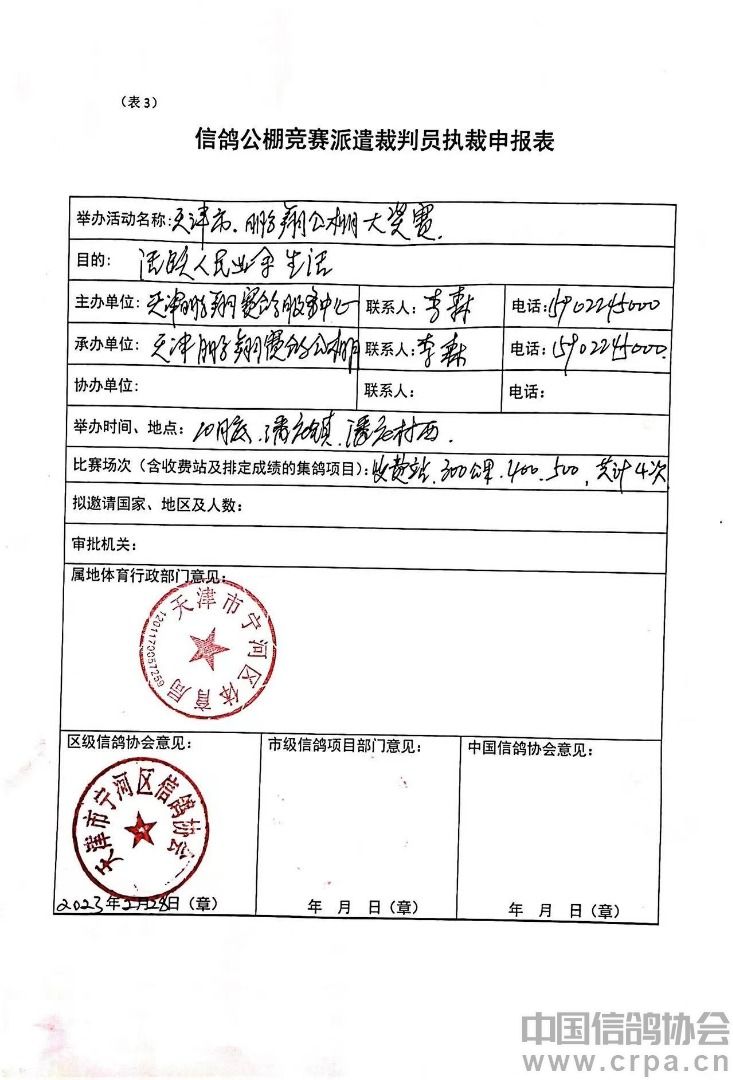 （表3）
信鸽公棚竞赛派遣裁判员执裁申报表
举办活动名称：天津市、鹏翔公棚大奖赛
目的： 活跃人民业余生活
主办单位：天津鹏翔赛鸽服务中心 联系人：李森 电话：15902245000
承办单位：天津鹏翔赛鸽公棚 联系人：李森 电话：15902245000
协办单位： 联系人： 电话：
举办时间、地点：10月底、潘庄镇、潘庄村西.
比赛场次（含收费站及排定成绩的集鸽项目）：收费站、300公里、400、500、共计4次
拟邀请国家、地区及人数：
审批机关：
属地体育行政部门意见：
天津市宁河区体育局
1201170057259
区级信鸽协会意见： 市级信鸽项目部门意见： 中国信鸽协会意见：
天津市宁河区信鸽协会
2023年2月28日（章） 年 月 日（章） 年 月 日（章）
中国信鸽协会
www.crpa.cn